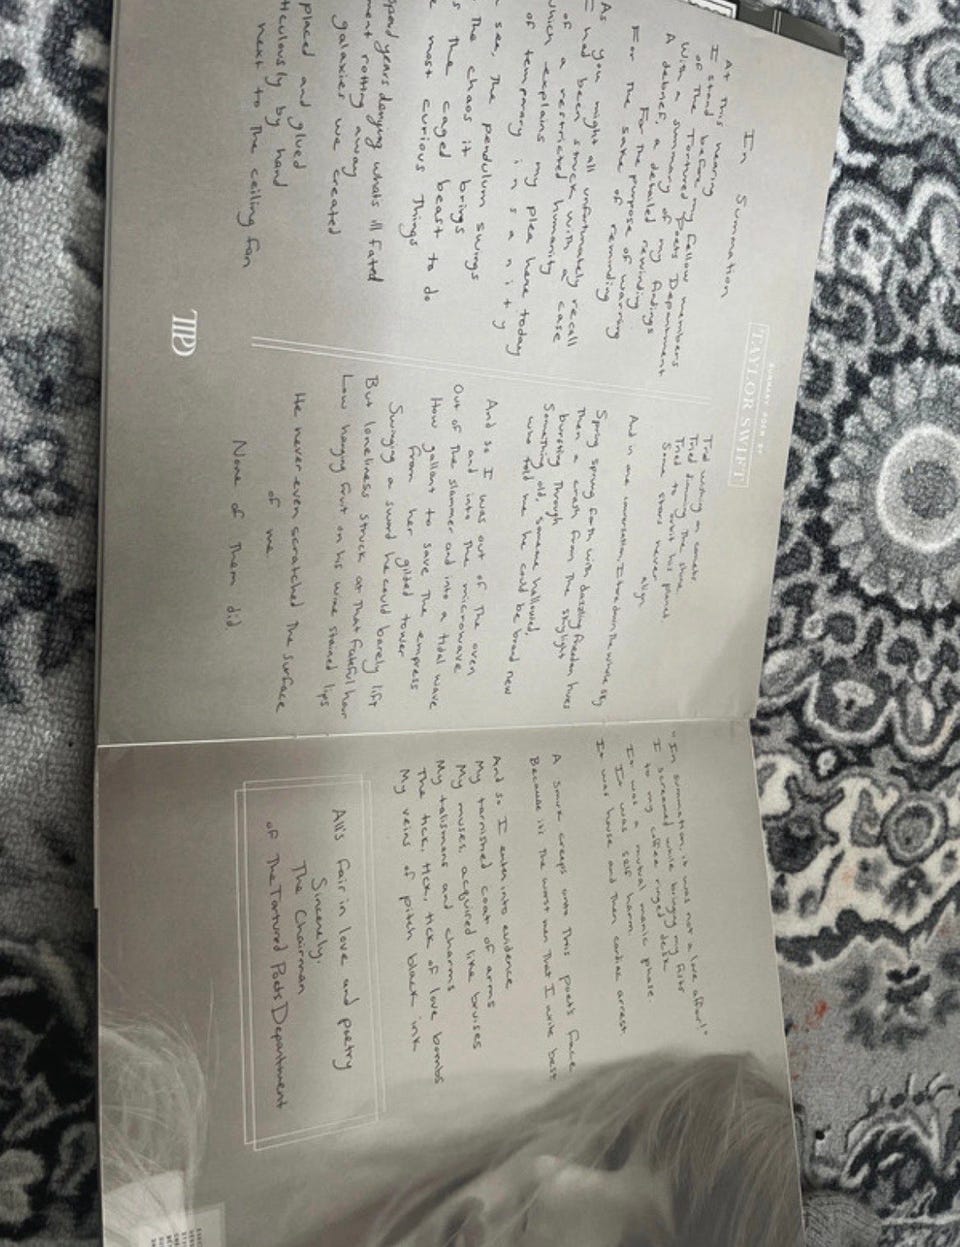 SUMMARY POEM BY
TAYLOR SWIFT
In Summation
At this hearing
I stand before my fellow members
of the Tortured Poets Department
With a summary of my findings
A debrief, a detailed rewinding
For the purpose of warning
For the sake of reminding
As you might all unfortunately recall
I had been struck with a case
of a restricted humanity
which explains my plea here today
of temporary i n s a n i t y
see, the pendulum swings
the chaos it brings
the caged beast to do
most curious things
spend years denying what's ill fated
rotting away
galaxies we created
placed and glued
by hand
next to the ceiling fan
Tried wishing on comets
Tried dimming the shine
Tried to orbit his planet
Some stars never align
And in one conversation, I tore down the whole sky
Spring sprung forth with dazzling freedom hues
Then a crash from the skylight
bursting through
Something old, someone hallowed,
who told me he could be brand new
And so I was out of the oven
and into the microwave
Out of the slammer and into a tidal wave
How gallant to save the empress
from her gilded tower
Swinging a sword he could barely lift
But loneliness struck at that fateful hour
Low hanging fruit on his wine stained lips
He never even scratched the surface
of me
None of them did
TTPD
"In summation, it was not a love affair!"
I screamed while bringing my fists
to my coffee ringed desk
It was a mutual manic phase
It was self harm
It was house and then cardiac arrest
A smirk creeps onto this poet's face
Because it's the worst men that I write best
And so I enter into evidence
My tarnished coat of arms
My muses, acquired like bruises
My talismans and charms
The tick, tick, tick of love bombs
My veins of pitch black ink
All's fair in love and poetry
Sincerely,
The Chairman
of The Tortured Poets Department